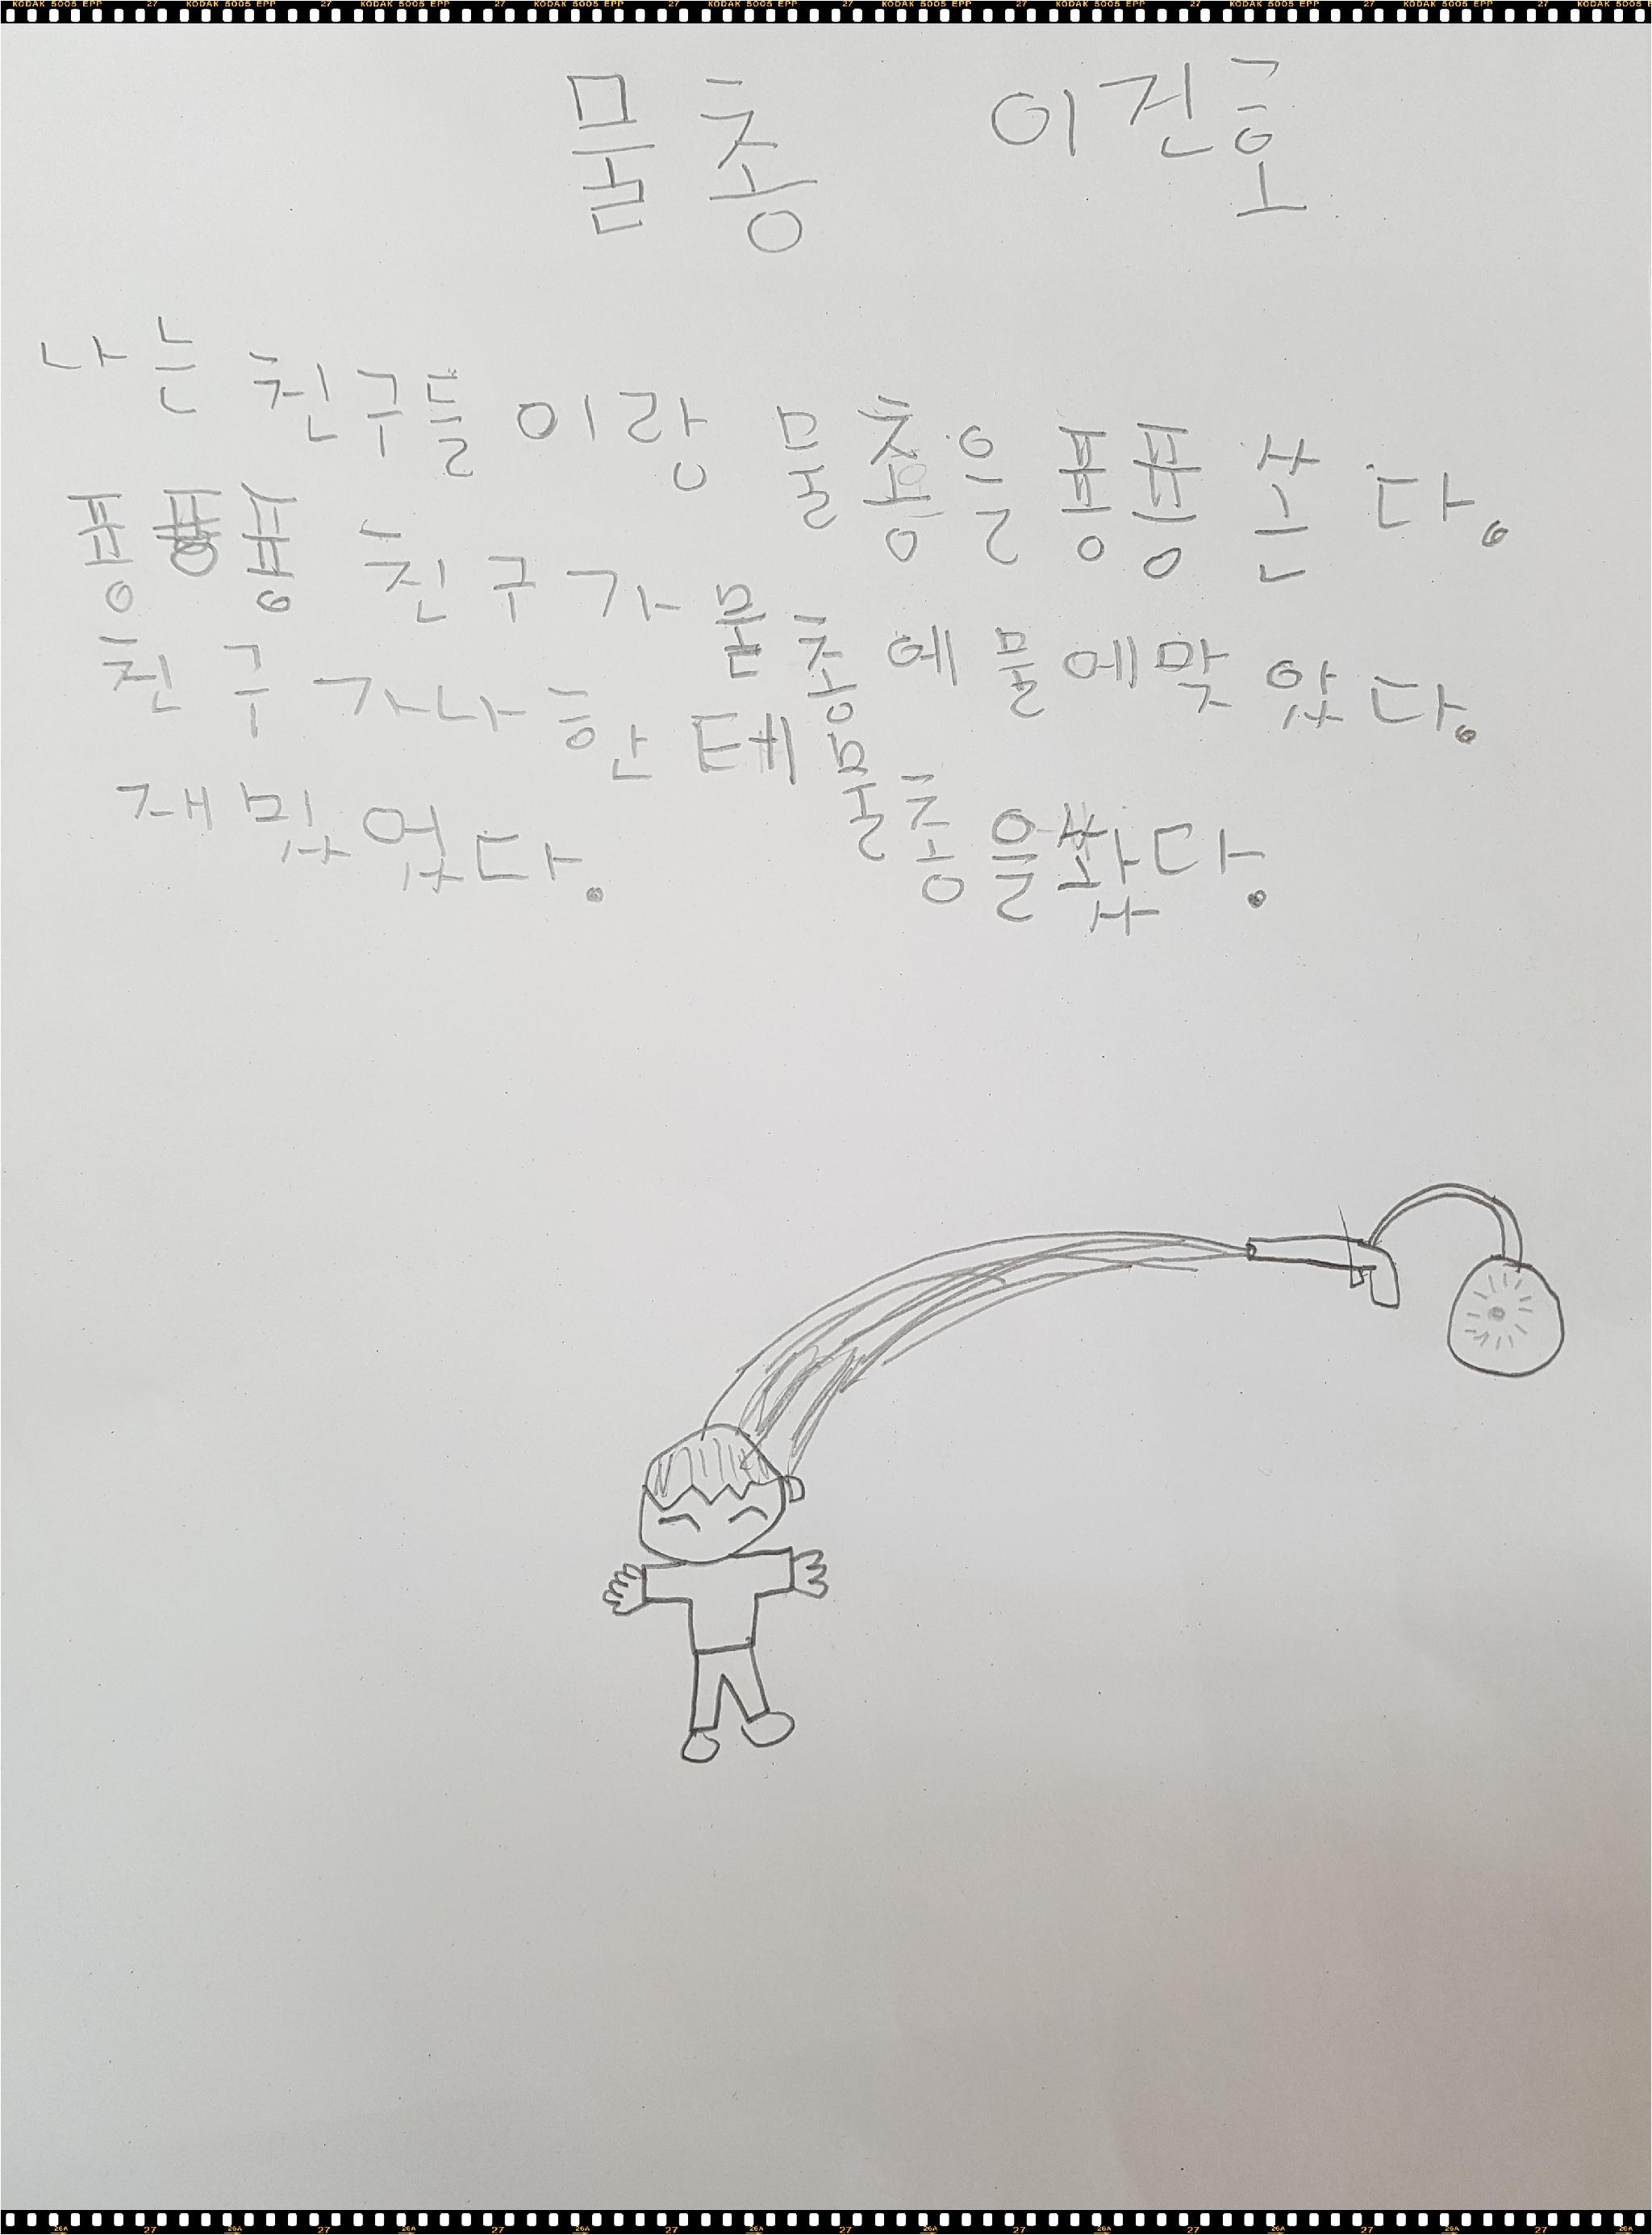 KODAK 5005 EPP 27 KODAK 5005 EPP 27 KODAK 5005 EPP 27 KODAK 5005 EPP 27 KODAK 5005 EPP 27 KODAK 5005 EPP 27 KODAK 5005 EPP 27 KODAK 5005 EPP 27 KODAK 5005 EPP 27 KODAK 5005
물총 이진호
나는 친구들이랑 물총을 퐁퐁 쏜다.
퐁 슝 친구가 물총에 물에맞았다.
친구가나한테 물총을쐈다.
재밌었다.
26A 27 26A 27 26A 27 26A 27 26A 27 26A 27 26A 27 26A 27 26A 27 26A